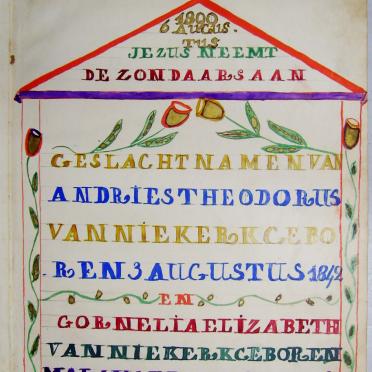 1890
6 AUGUS
TUS
JEZUS NEEMT
DE ZONDAARS AAN
GESLACHTNAMEN VAN
ANDRIES THEODORUS
VAN NIEKERK GEBO
REN 3 AUGUSTUS 1842
EN
CORNELIA ELIZABETH
VAN NIEKERK GEBOREN